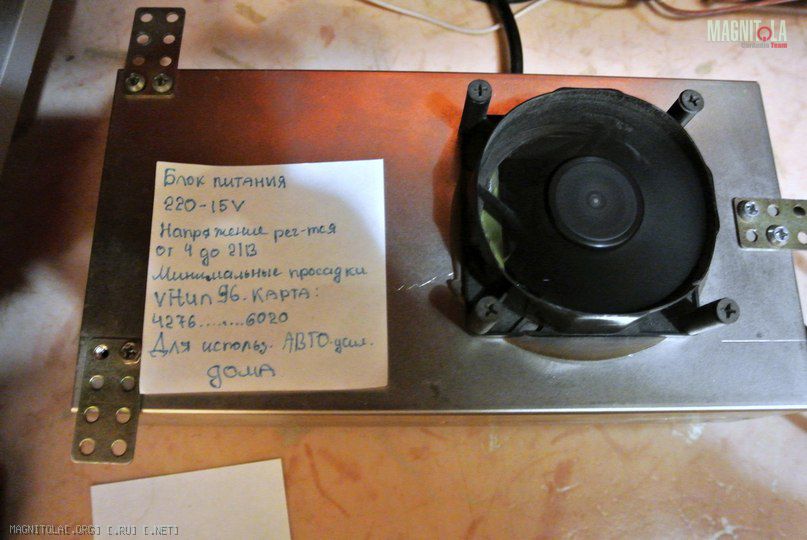 MAGNITOLA
Car Audio Team
Блок питания
220-15V
Напряжение рег-тся
от 4 до 21В
Минимальные просадки
vHun96. КАРТА:
4276........6020
Для использ. АВТО-усил.
ДОМА
MAGNITOLA[.ORG] [.RU] [.NET]